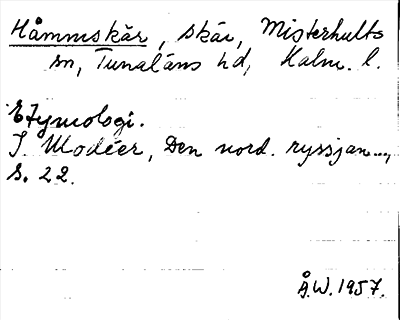 Håmmskär, skär, Misterhults
sn, Tunaläns hd, Kalm. l.
Etymologi.
I. Modéer, Den nord. ryssjan...,
S. 22.
Å.W. 1957.